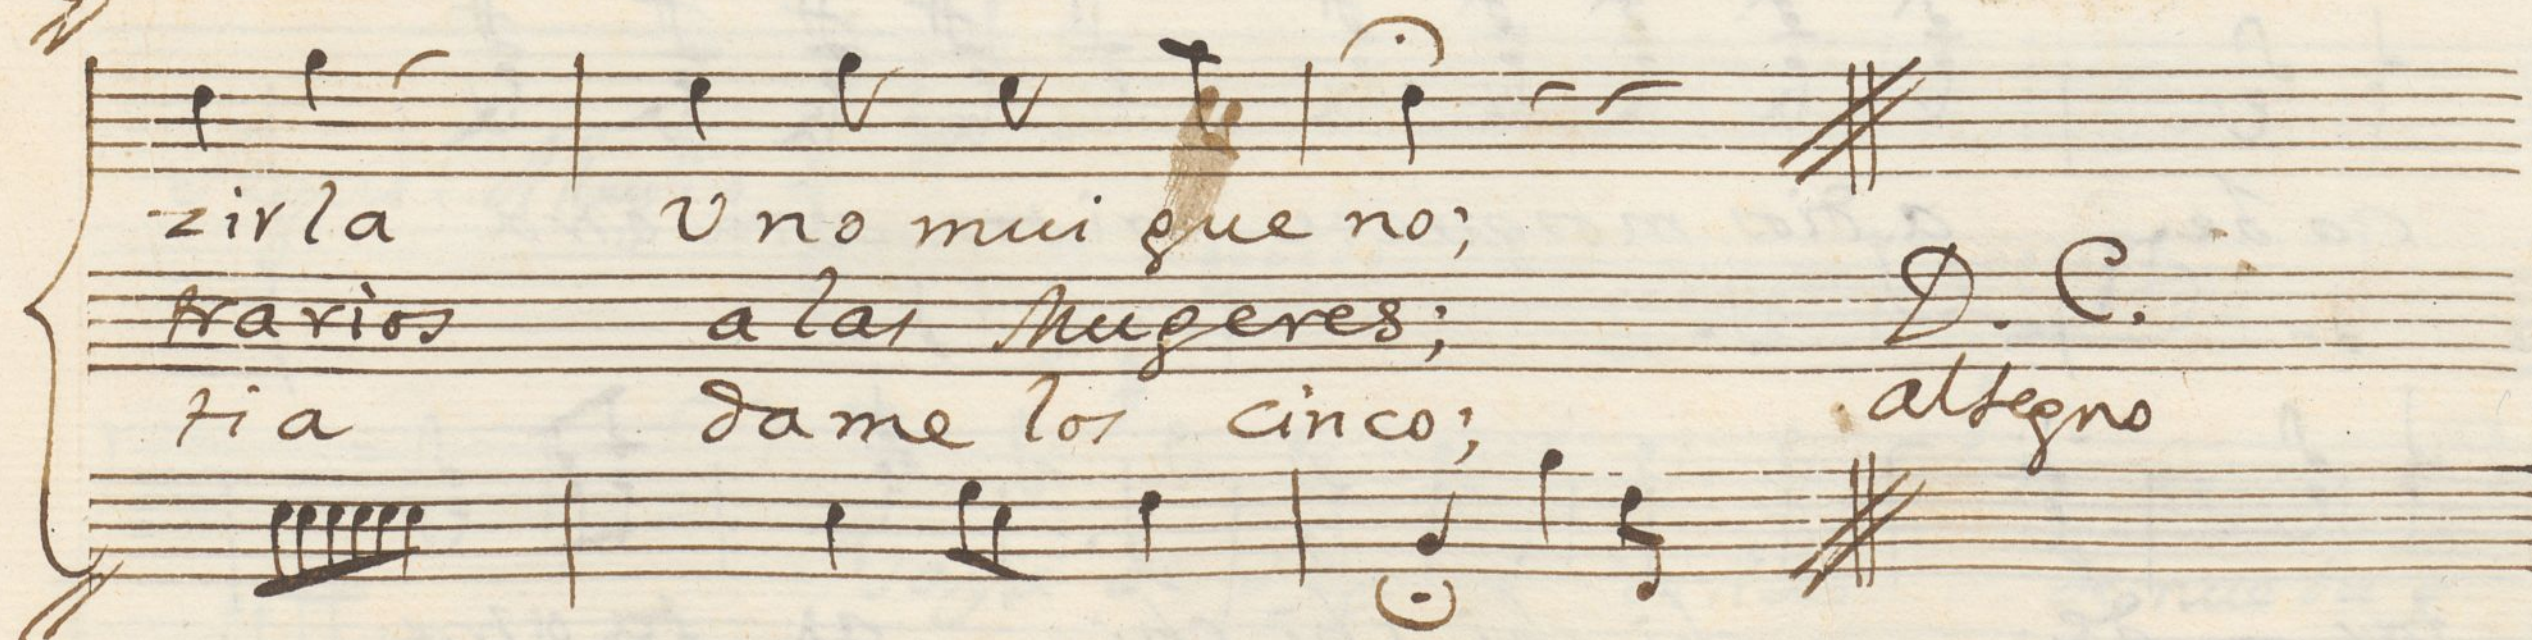 zirla Uno mui gueno;
trarios a las Mugeres;
D. C.
tia dame los cinco;
al segno